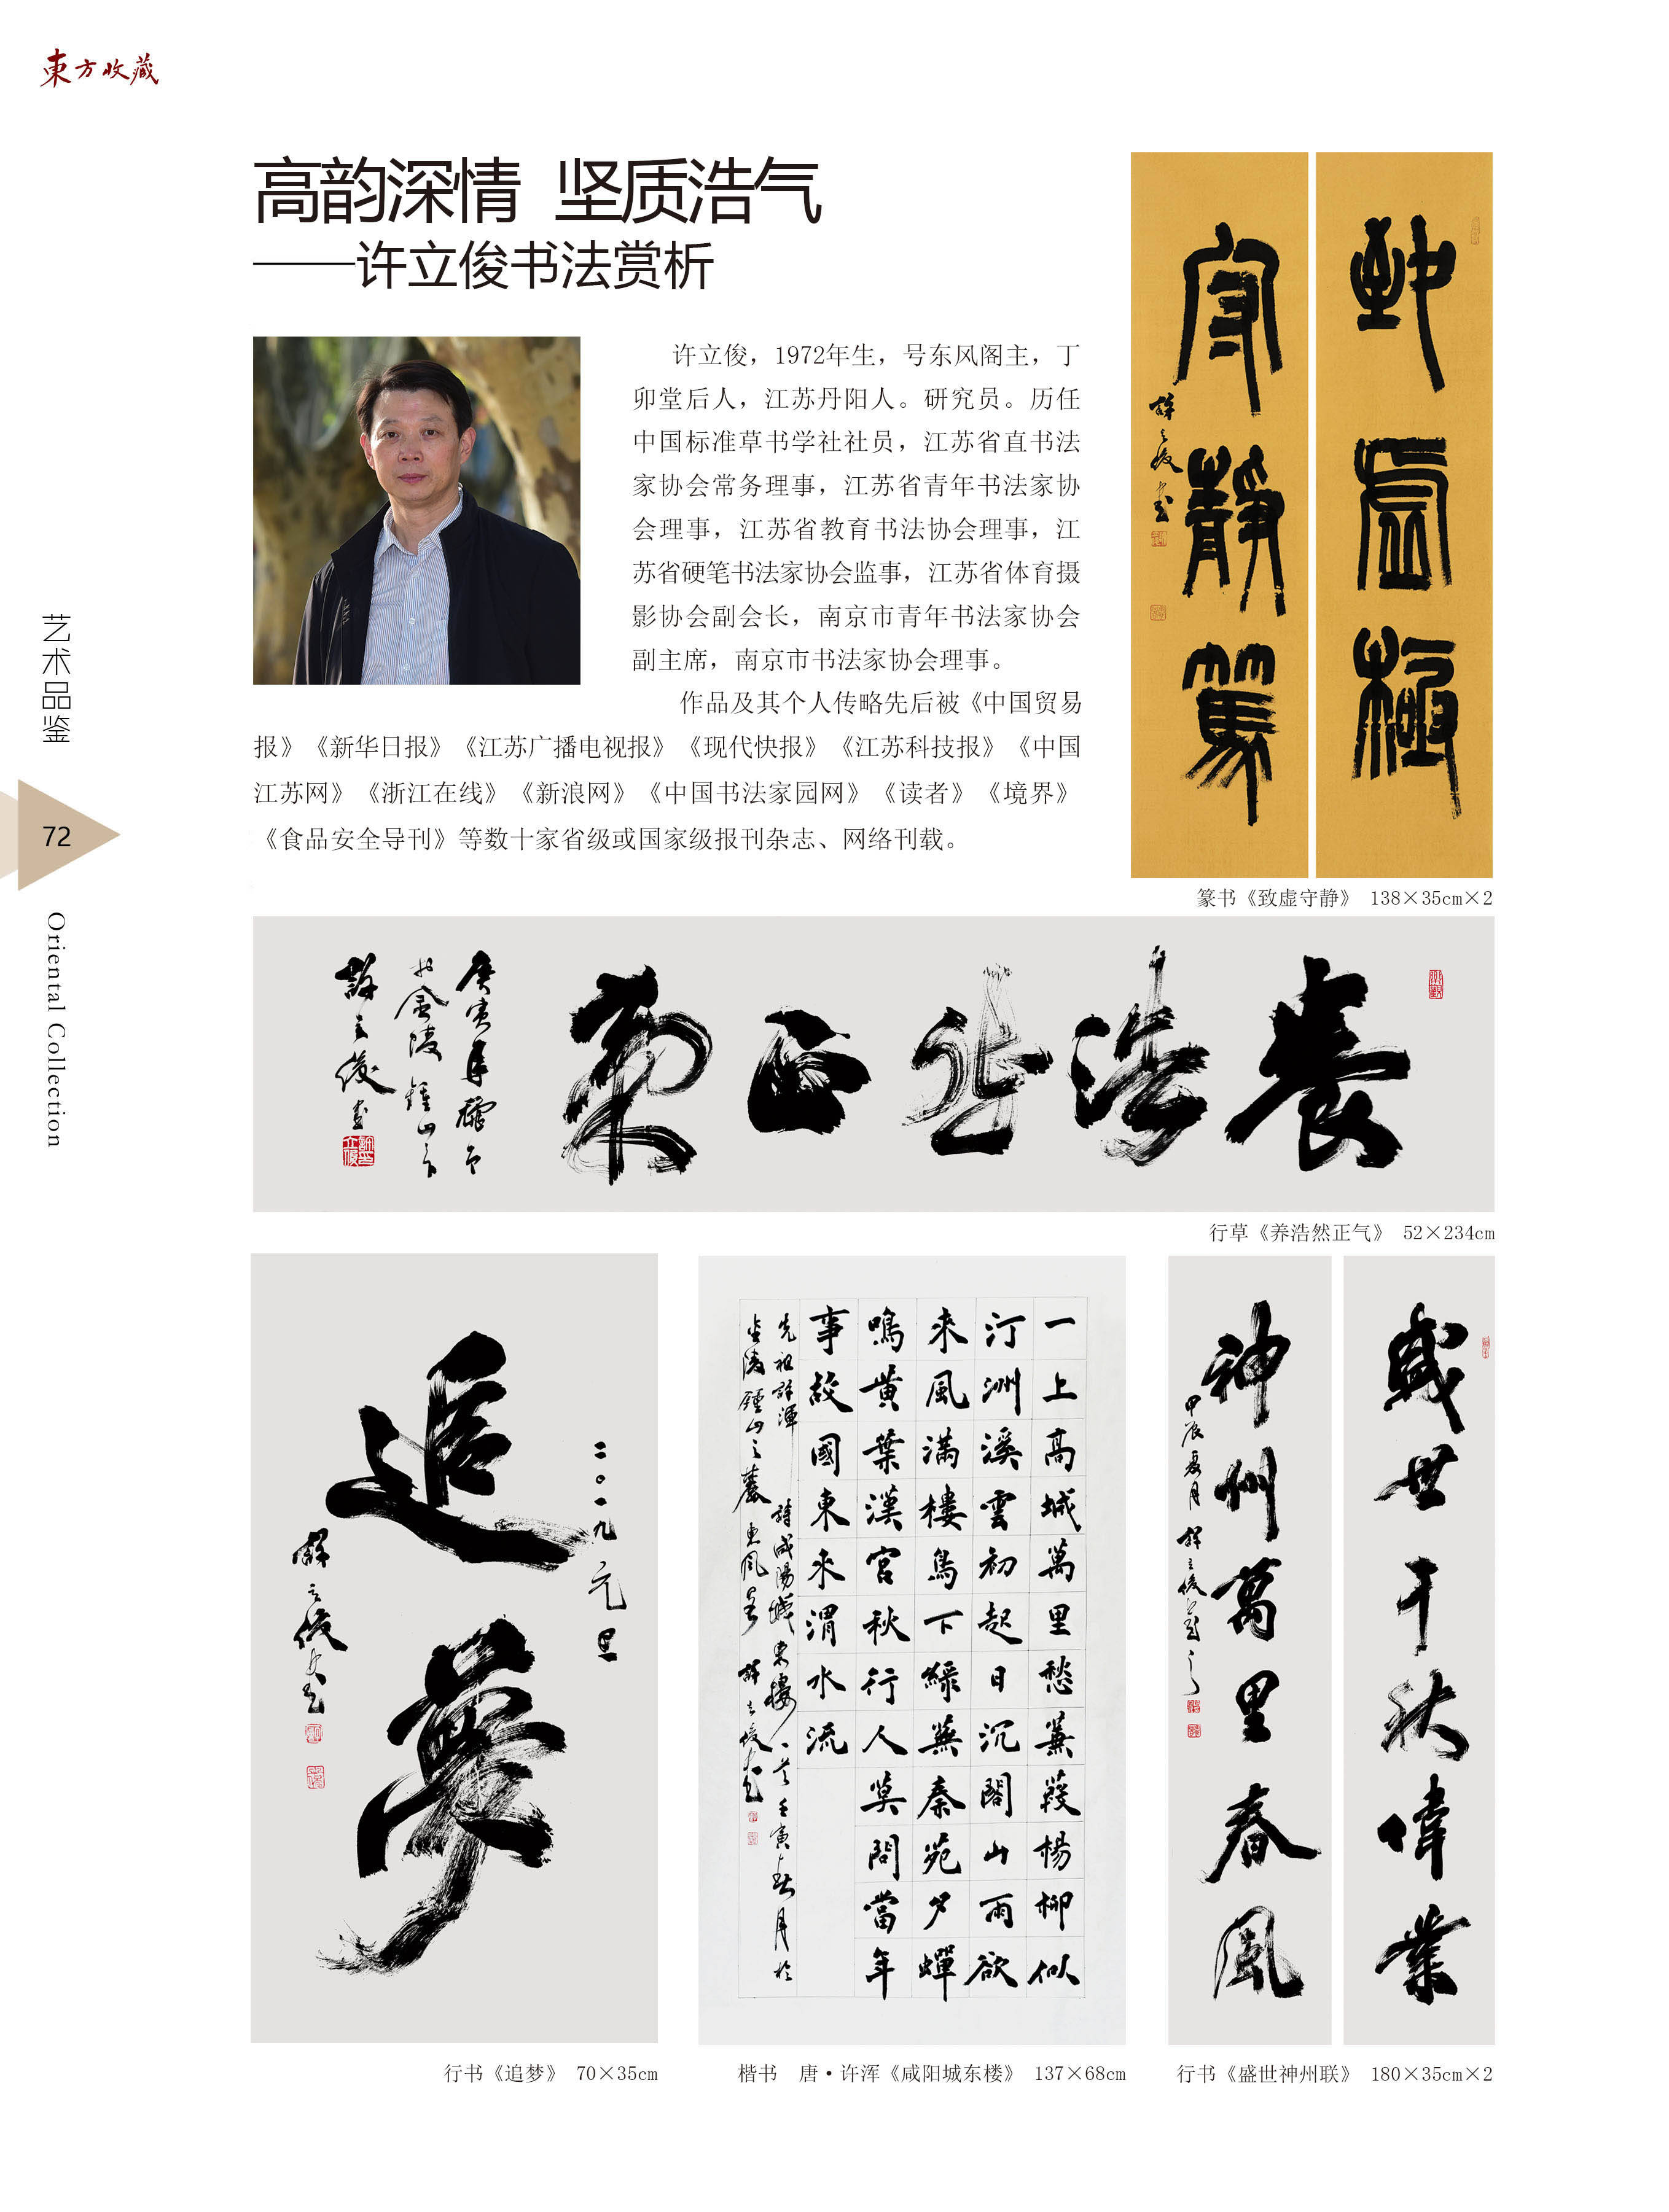 東方收藏
高韵深情 坚质浩气
——许立俊书法赏析
许立俊，1972年生，号东风阁主，丁
卯堂后人，江苏丹阳人。研究员。历任
中国标准草书学社社员，江苏省直书法
家协会常务理事，江苏省青年书法家协
会理事，江苏省教育书法协会理事，江
苏省硬笔书法家协会监事，江苏省体育摄
影协会副会长，南京市青年书法家协会
副主席，南京市书法家协会理事。
作品及其个人传略先后被《中国贸易
报》《新华日报》《江苏广播电视报》《现代快报》《江苏科技报》《中国
江苏网》《浙江在线》《新浪网》《中国书法家园网》《读者》《境界》
《食品安全导刊》等数十家省级或国家级报刊杂志、网络刊载。
艺术品鉴
72
Oriental Collection
致虛極
守靜篤
許立俊書
篆书《致虚守静》 138×35cm×2
養浩然正氣
庚寅年
於金陵鍾山下
許立俊書
行草《养浩然正气》 52×234cm
二〇一九元旦
追夢
許立俊書
行书《追梦》 70×35cm
一上高城萬里愁蒹葭楊柳似
汀洲溪雲初起日沉閣山雨欲
來風滿樓鳥下綠蕪秦苑夕蟬
鳴黄葉漢宮秋行人莫問當年
事故國東来渭水流
先祖許渾詩咸陽城東樓一首壬寅春月於
金陵鍾山之麓東風閣許立俊書
楷书 唐·许浑《咸阳城东楼》 137×68cm
盛世千秋偉業
神州萬里春風
甲辰夏月許立俊書
行书《盛世神州联》 180×35cm×2